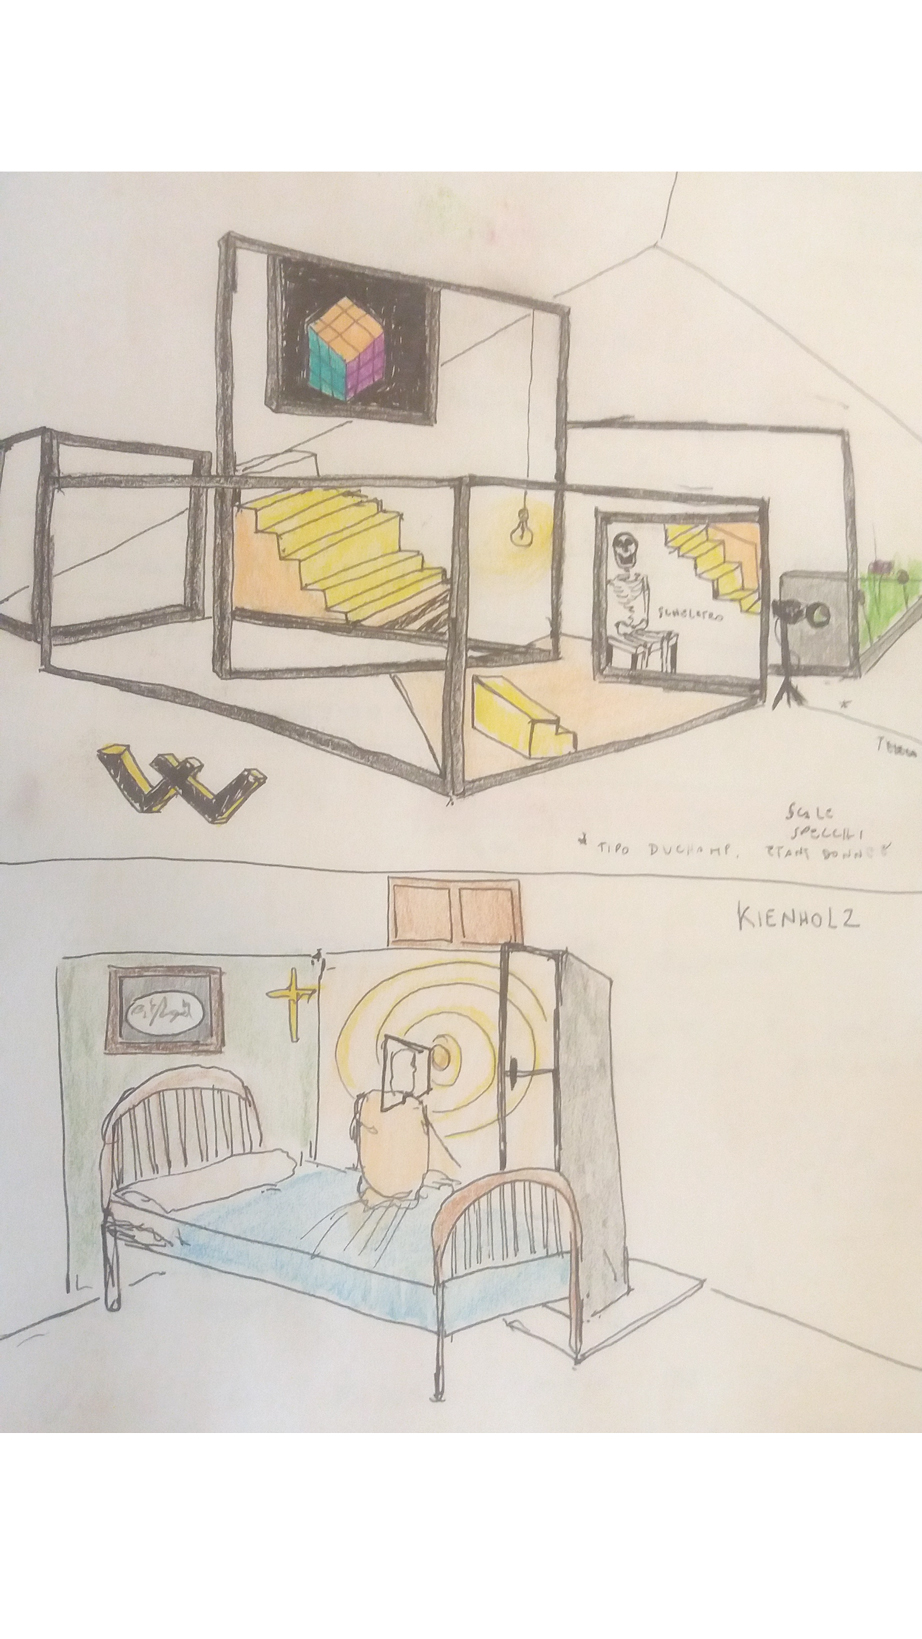 SCHELETRO
TERRA
SCALE
SPECCHI
* TIPO DUCHAMP. ETANT DONNES
KIENHOLZ